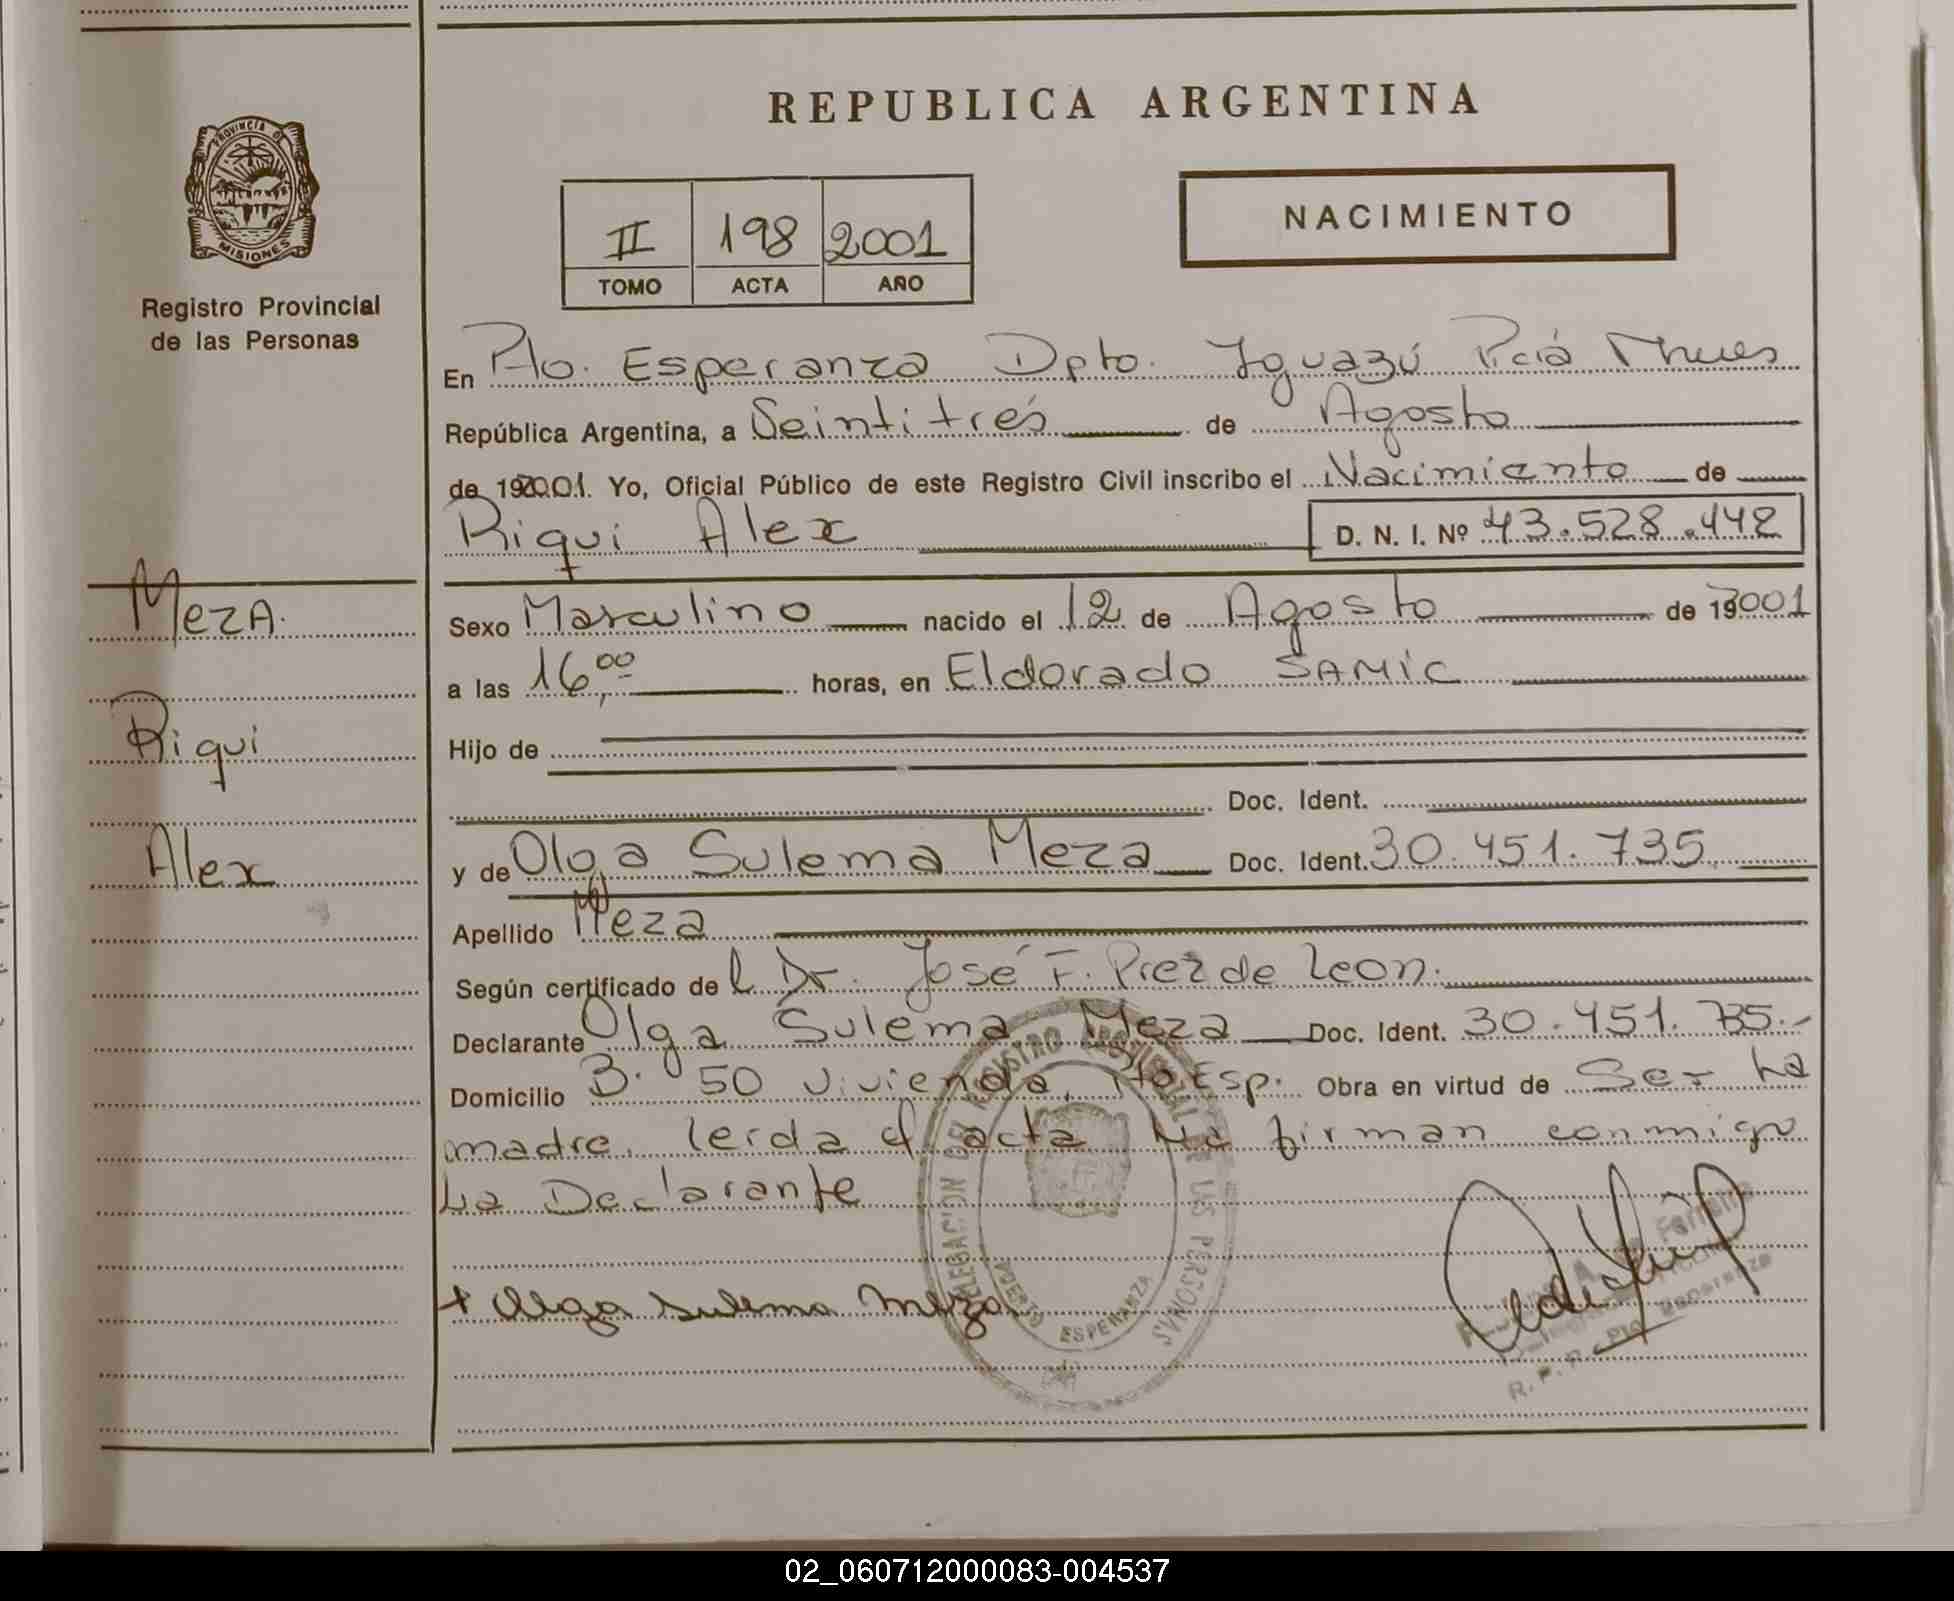 REPUBLICA ARGENTINA
PROVINCIA DE
MISIONES
Registro Provincial
de las Personas
II 198 2001
TOMO ACTA AÑO
NACIMIENTO
En Pto. Esperanza Dpto. Iguazú Pcia Mnes
República Argentina, a Veintitrés de Agosto
de 192001. Yo, Oficial Público de este Registro Civil inscribo el Nacimiento de
Riqui Alex D. N. I. Nº 43.528.442
MezA.
Riqui
Alex
Sexo Masculino nacido el 12 de Agosto de 192001
a las 16,00 horas, en Eldorado SAMIC
Hijo de
Doc. Ident.
y de Olga Sulema Meza Doc. Ident. 30.451.735.
Apellido Meza
Según certificado de l Dr. José F. Prez de Leon.
Declarante Olga Sulema Meza Doc. Ident. 30.451.735.-
Domicilio B. 50 Vivienda, Pto Esp. Obra en virtud de Ser La
madre. leida el acta La firman conmigo
La Declarante
+ Olga sulema meza
DELEGACION DEL REGISTRO PROVINCIAL DE LAS PERSONAS
PUERTO ESPERANZA
Ferreira
R. P. P. Pto. Esperanza
02_060712000083-004537